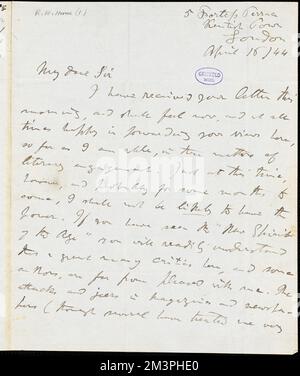 R. H. Horne (1)
5 Fortess Terrace
Kentish Town
London
April 16/44
GRISWOLD
MSS.
My dear Sir
I have received your letter this
morning, and shall feel now, and at all
times happy in forwarding your views here,
so far as I am able, in the matters of
literary engagement. Just at this time,
however, and probably for some months to
come, I shall not be likely to have the
power. If you have seen the "New Spirit
of the Age" you will readily understand
that a great many critics here, and some
authors, are far from pleased with me. The
attacks and jeers in magazines and newspa-
pers (though several have treated me very
alamy
Image ID: 3MP3HE0
www.alamy.com